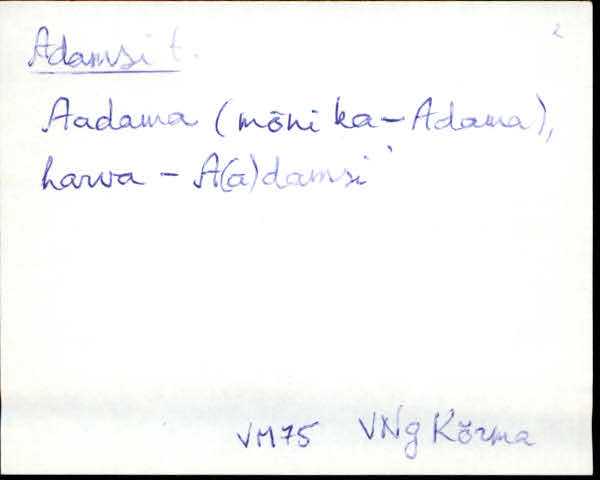 2
Adamsi t.
Aadama (mõni ka – Adama),
harva – A(a)damsi
VM75 VNg Kõrma